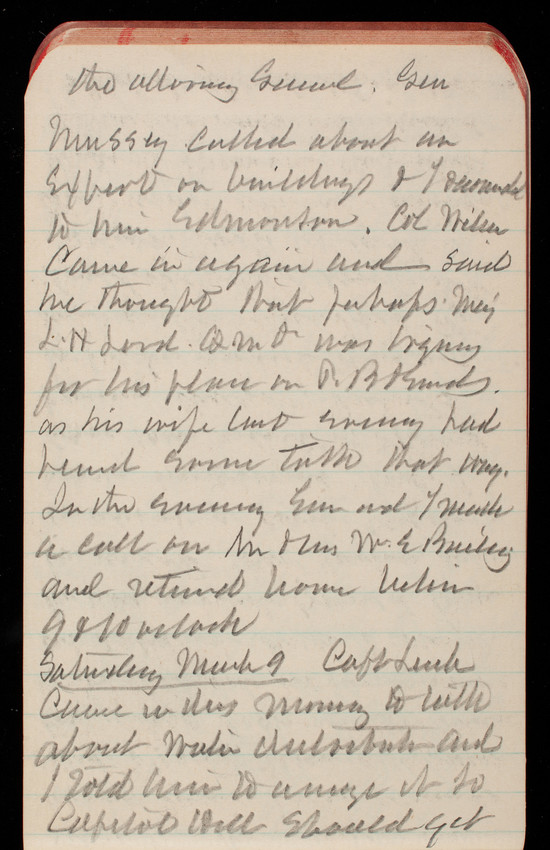 the attorney General. Gen
Mussey called about an
Expert on buildings & I recomnd
to him Edmonston. Col Wilson
Came in again and said
he thought that perhaps Maj
L. H. Lord. Q M D was trying
for his place on P. B & Grnds.
as his wife last evening had
heard some talk that way.
In the evening Em and I made
a call on Mr & Mrs W. E Bailey
and returned home between
9 & 10 oclock
Saturday March 9 Capt Lusk
Came in this morning to talk
about Water distribution and
I told him to arrange it so
Capitol Hill should get